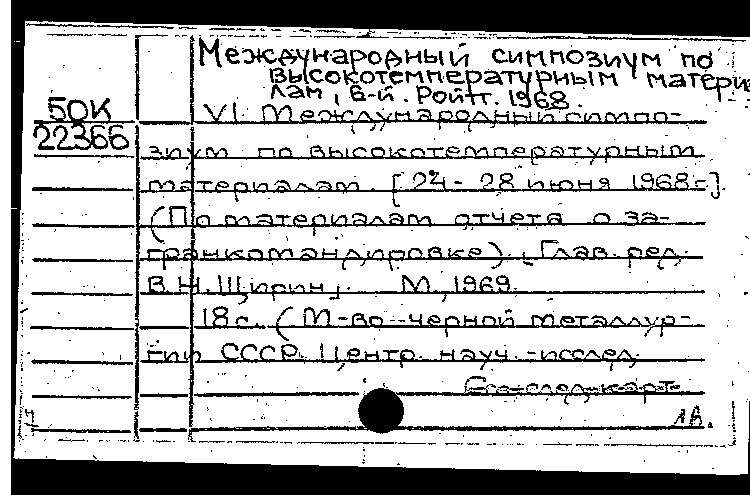 Международный симпозиум по
высокотемпературным материа
лам, 6-й. Ройтт. 1968.
50К
22366
VI. Международный симпо-
зиум по высокотемпературным
материалам. [24-28 июня 1968г].
(По материалам отчета о за-
гранкомандировке). [Глав. ред.
В.Н. Щирин]. М., 1969.
18 с. (М-во черной металлур-
гии СССР. Центр. науч.-исслед.
См. след. карт.
1А.